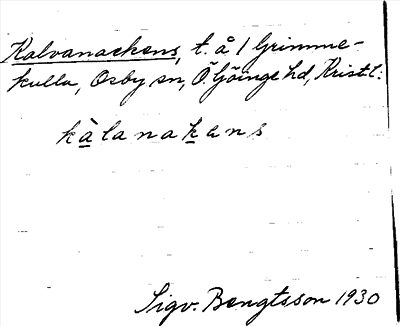 Kalvanackens, t. å 1 Grimme-
kulla, Osby sn, Ö Göinge hd, Krist l:
kàlanakans
Sigv. Bengtsson 1930